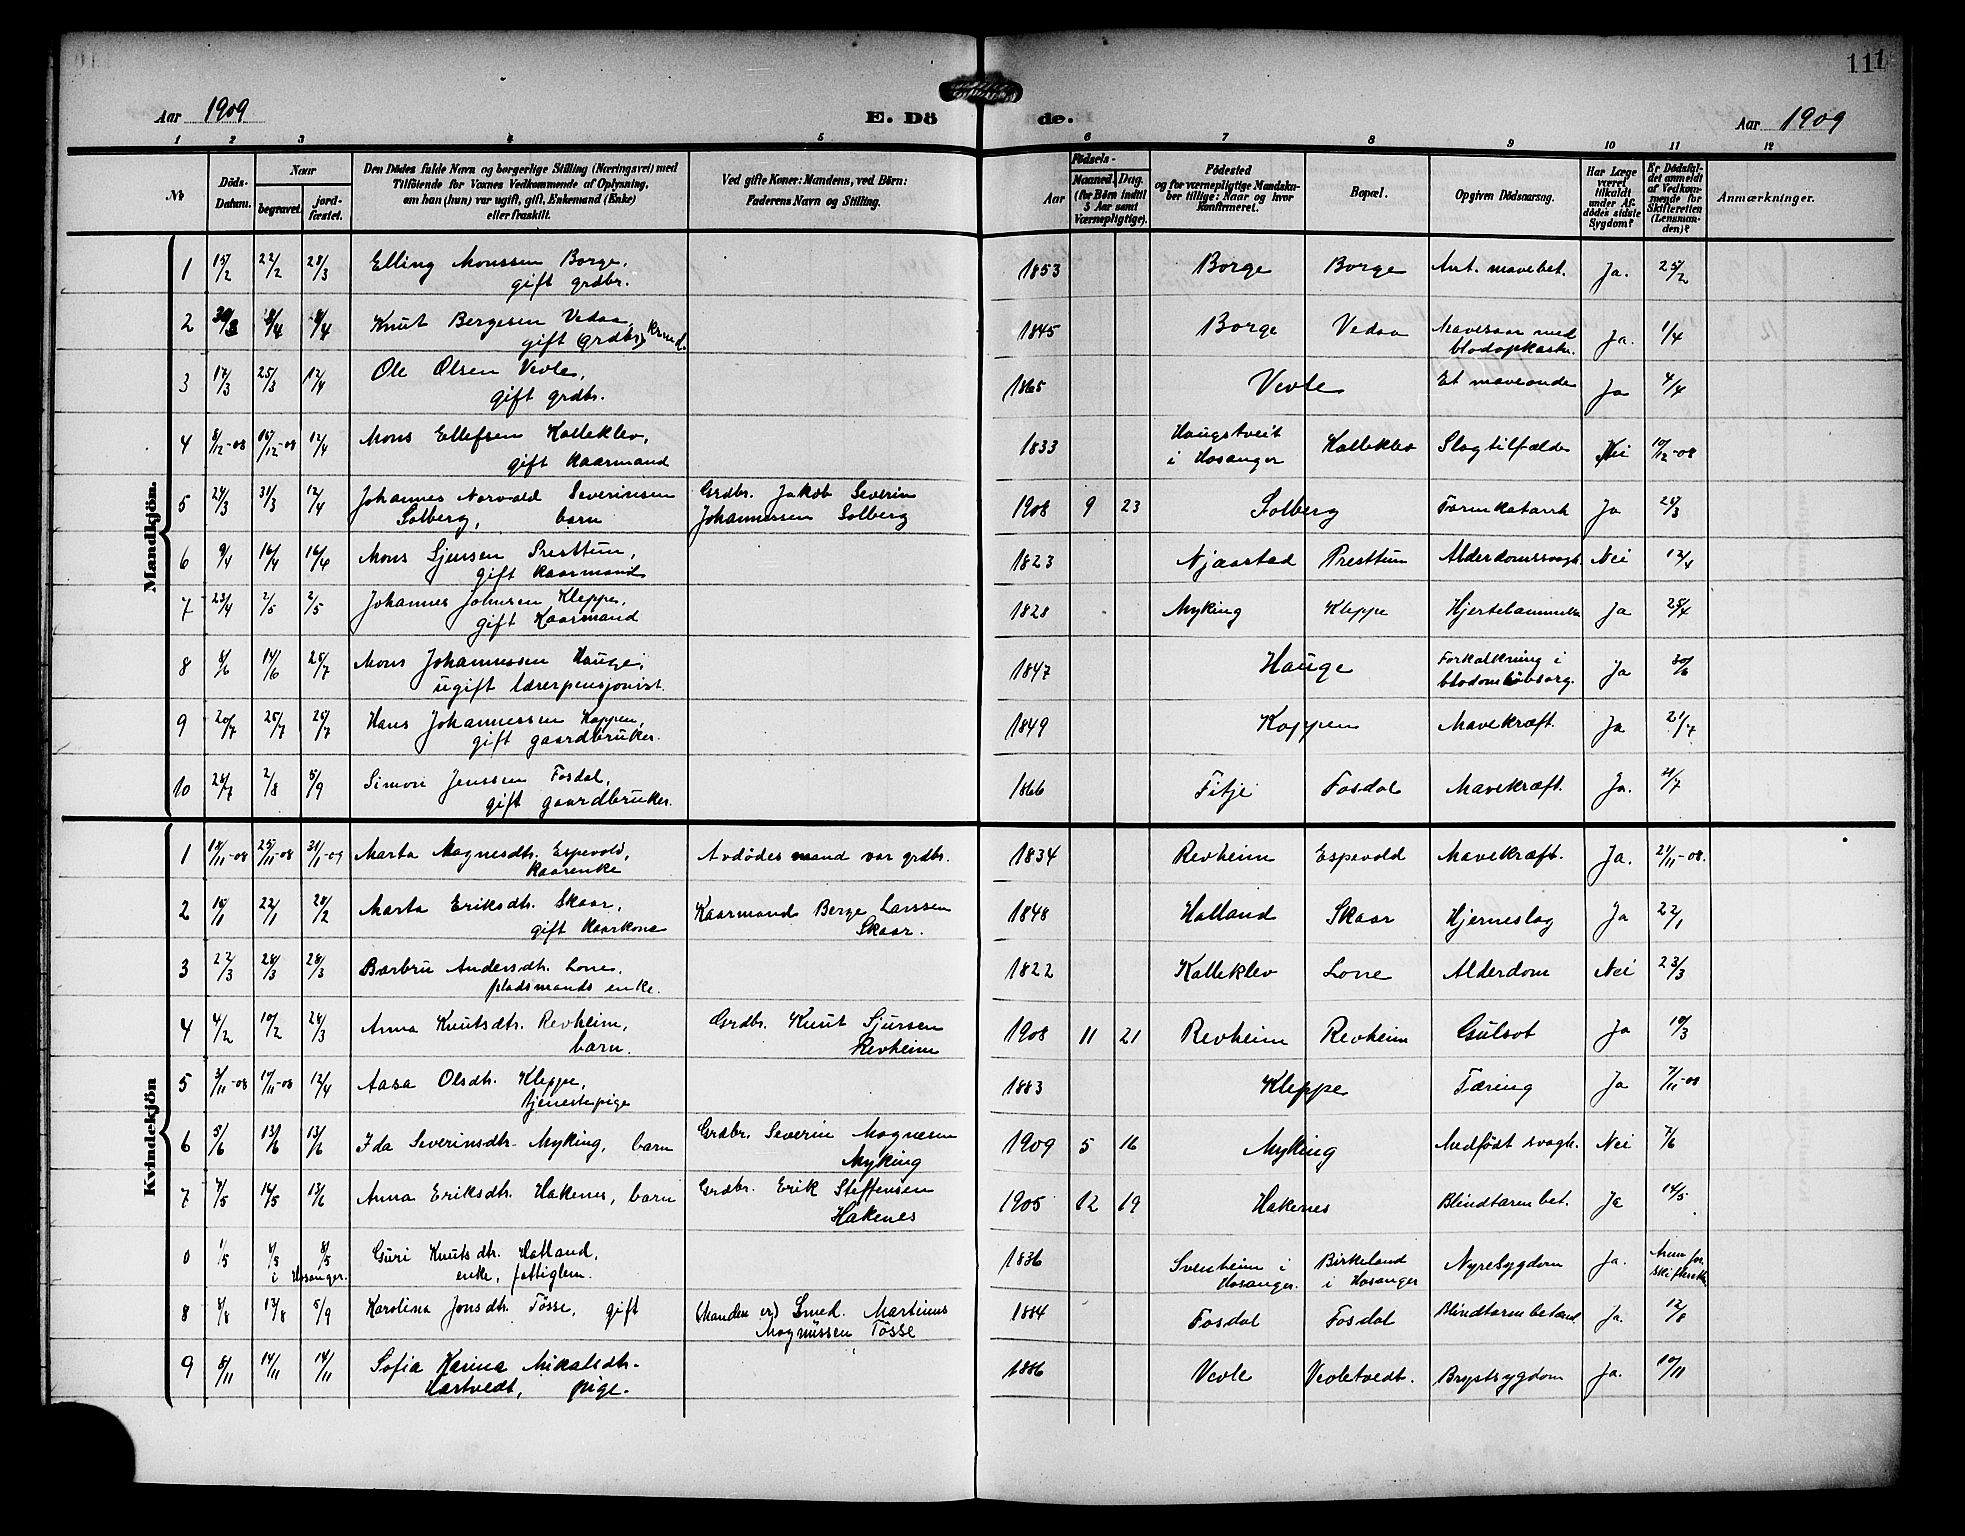 111
Aar 1909
E. Dö de.
Aar 1909
1 2 3 4 5 6 7 8 9 10 11 12
№
Döds-Datum.
Naar
begravet.
jord-fæstet.
Den Dödes fulde Navn og borgerlige Stilling (Næringsvei) med
Tilföiende for Voxnes Vedkommende af Oplysning,
om han (hun) var ugift, gift, Enkemand (Enke)
eller fraskilt.
Ved gifte Koner: Mandens, ved Börn:
Faderens Navn og Stilling.
Födsels-
Aar
Maaned. Dag.
(for Børn indtil
5 Aar samt
Værnepligtige).
Födested
og for værnepligtige Mandskaber tillige: Naar og hvor
konfirmeret.
Bopæl.
Opgiven Dödsaarsag.
Har Læge
været
tilkaldt
under Afdödes sidste
Sygdom?
Er Dödsfaldet anmeldt
af Vedkommende for
Skifteretten
(Lensmanden)?
Anmærkninger.
Mandkjön.
1 15/2 22/2 28/3 Elling Monssen Borge, 1853 Borge Borge Ant. mavebet. Ja. 25/2
gift grdbr.
2 30/3 8/4 8/4 Knut Bergesen Vedaa, 1845 Borge Vedaa Mavesaar med Ja. 1/4
gift (grdbr)
blodopkastn.
3 17/3 25/3 12/4 Ole Olsen Vevle, 1865 Vevle Et maveonde Ja 4/4
gift grdbr.
4 8/12-08 16/12-08 12/4 Mons Ellefsen Kalleklev, 1833 Haugstveit Kalleklev Slagtilfælde Nei 10/12-08
gift kaarmand i Hosanger
5 24/3 31/3 12/4 Johannes Norvald Severinsen Grdbr. Jakob Severin 1908 9 23 Solberg Tarmkatarrh Ja 24/3
Solberg, barn Johannessen Solberg
6 9/4 16/4 16/4 Mons Sjursen Presttun, 1823 Njaastad Presttun Alderdomssvagh. Nei 12/4
gift kaarmand
7 23/4 2/5 2/5 Johannes Johnsen Kleppe, 1828 Myking Kleppe Hjertelammelse Ja 25/4
gift Kaarmand
8 8/6 14/6 25/7 Mons Johannessen Hauge, 1847 Hauge Forkalkning i Ja 30/6
ugift lærerpensjonist. blodomløbsorg.
9 20/7 25/7 25/7 Hans Johannessen Koppen, 1849 Koppen Mavekræft. Ja 21/7
gift gaardbruker.
10 28/7 2/8 5/9 Simon Jenssen Fosdal, 1866 Fitje Fosdal Mavekræft. Ja. 31/7
gift gaardbruker.
Kvindekjön
1 18/11-08 25/11-08 31/1-09 Marta Magnesdtr. Espevold, Avdødes mand var grdbr. 1834 Revheim Espevold Mavekræft. Ja. 21/11-08.
kaarenke
2 15/1 22/1 28/2 Marta Eriksdtr. Skaar, Kaarmand Berge Larssen 1848 Hatland Skaar Hjerneslag Ja 22/1
gift kaarkone Skaar.
3 22/3 28/3 28/3 Barbru Andersdtr. Lone, 1822 Kalleklev Lone Alderdom Nei 23/3
pladsmands enke.
4 4/2 10/2 24/3 Anna Knutsdtr. Revheim, Grdbr. Knut Sjursen 1908 11 21 Revheim Revheim Gulsot Ja 10/3
barn. Revheim
5 3/11-08 10/11-08 12/4 Aasa Olsdtr. Kleppe, 1883 Kleppe Tæring Ja 7/11-08
tjenestepige
6 5/6 13/6 13/6 Ida Severinsdtr. Myking, barn Grdbr. Severin Magnesen 1909 5 16 Myking Medfødt svagh. Nei 7/6
Myking
7 7/5 14/5 13/6 Anna Eriksdtr. Hakenes, barn Grdbr. Erik Steffensen 1905 12 19 Hakenes Blindtarmbet. Ja 14/5
Hakenes
0 1/5 8/5 8/5 Guri Knutsdtr. Hatland, 1836 Sveheim i Birkeland Nyresygdom Ja. Anm for
i Hosanger. enke, fattiglem. Hosanger. i Hosanger skifteretten
8 8/8 13/8 5/9 Karolina Jonsdtr. Tösse, gift (Manden er) Smed. Martinus 1884 Fosdal Fosdal Blindtarmbetænd. Ja. 12/8
Magnussen Tösse
9 8/11 14/11 14/11 Sofia Karina Mikalsdtr. 1886 Vevle Vevletvedt. Brystsygdom Ja. 10/11
Hartvedt, pige.